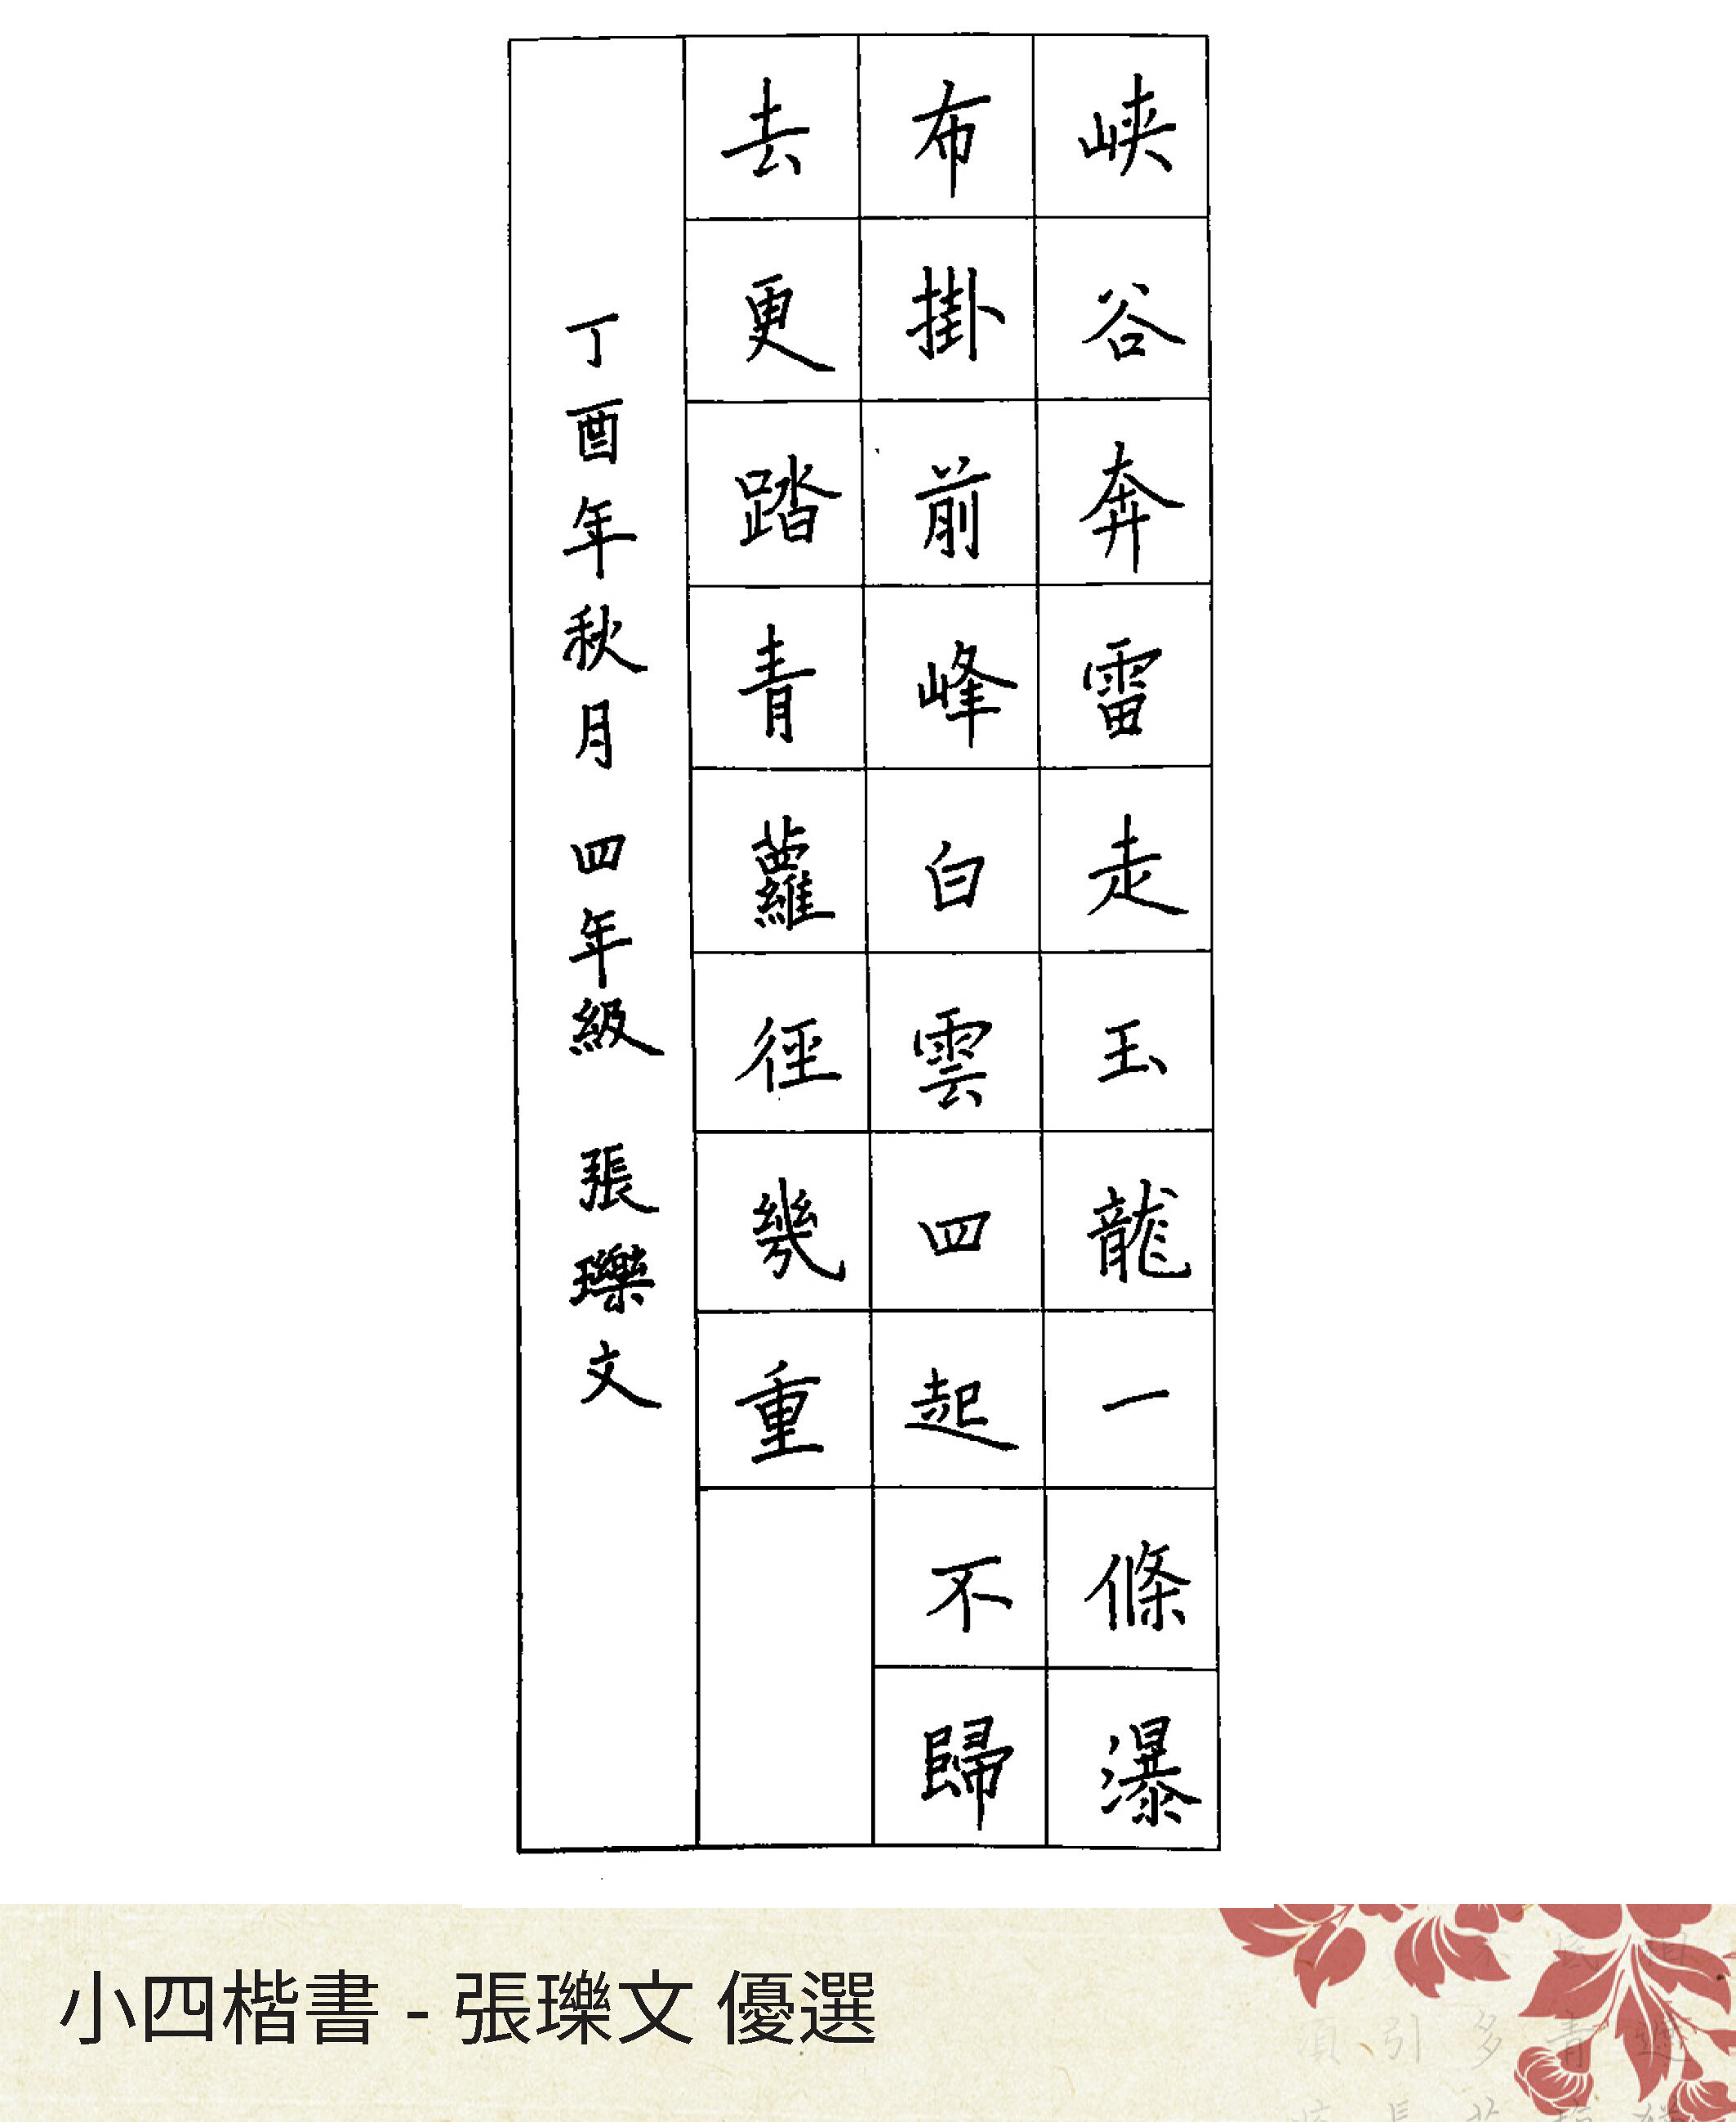 峽谷奔雷走玉龍一條瀑
布掛前峰白雲四起不歸
去更踏青蘿徑幾重
丁酉年秋月 四年級 張瓅文
小四楷書 - 張瓅文 優選